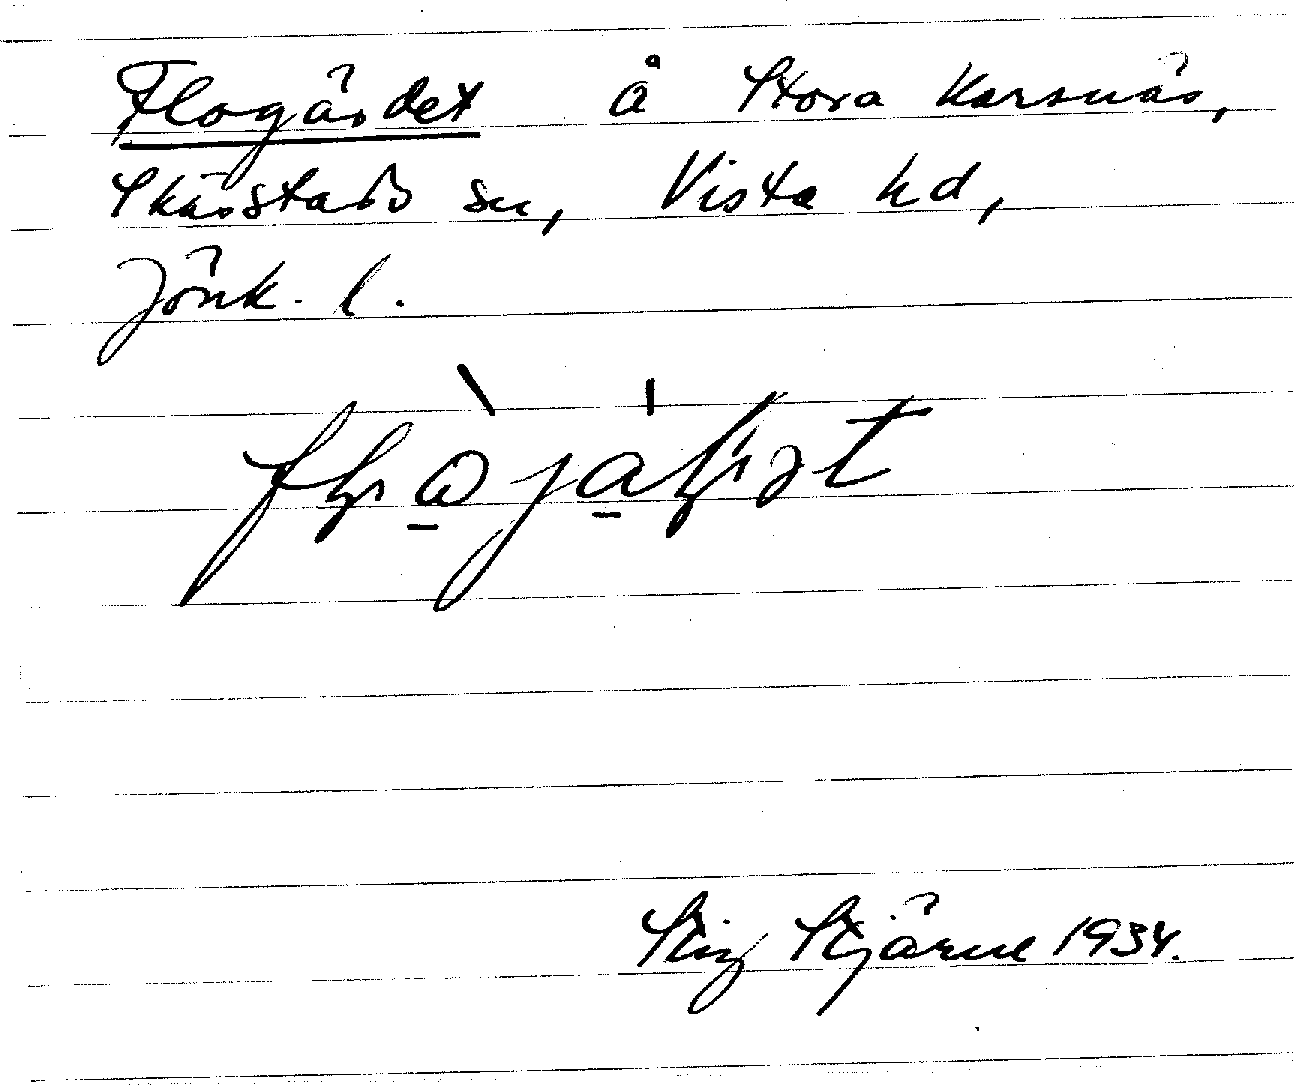 Flogärdet å Stora Karsnäs,
Skärstads sn, Vista hd,
Jönk. l.
Stig Stjärne 1934.